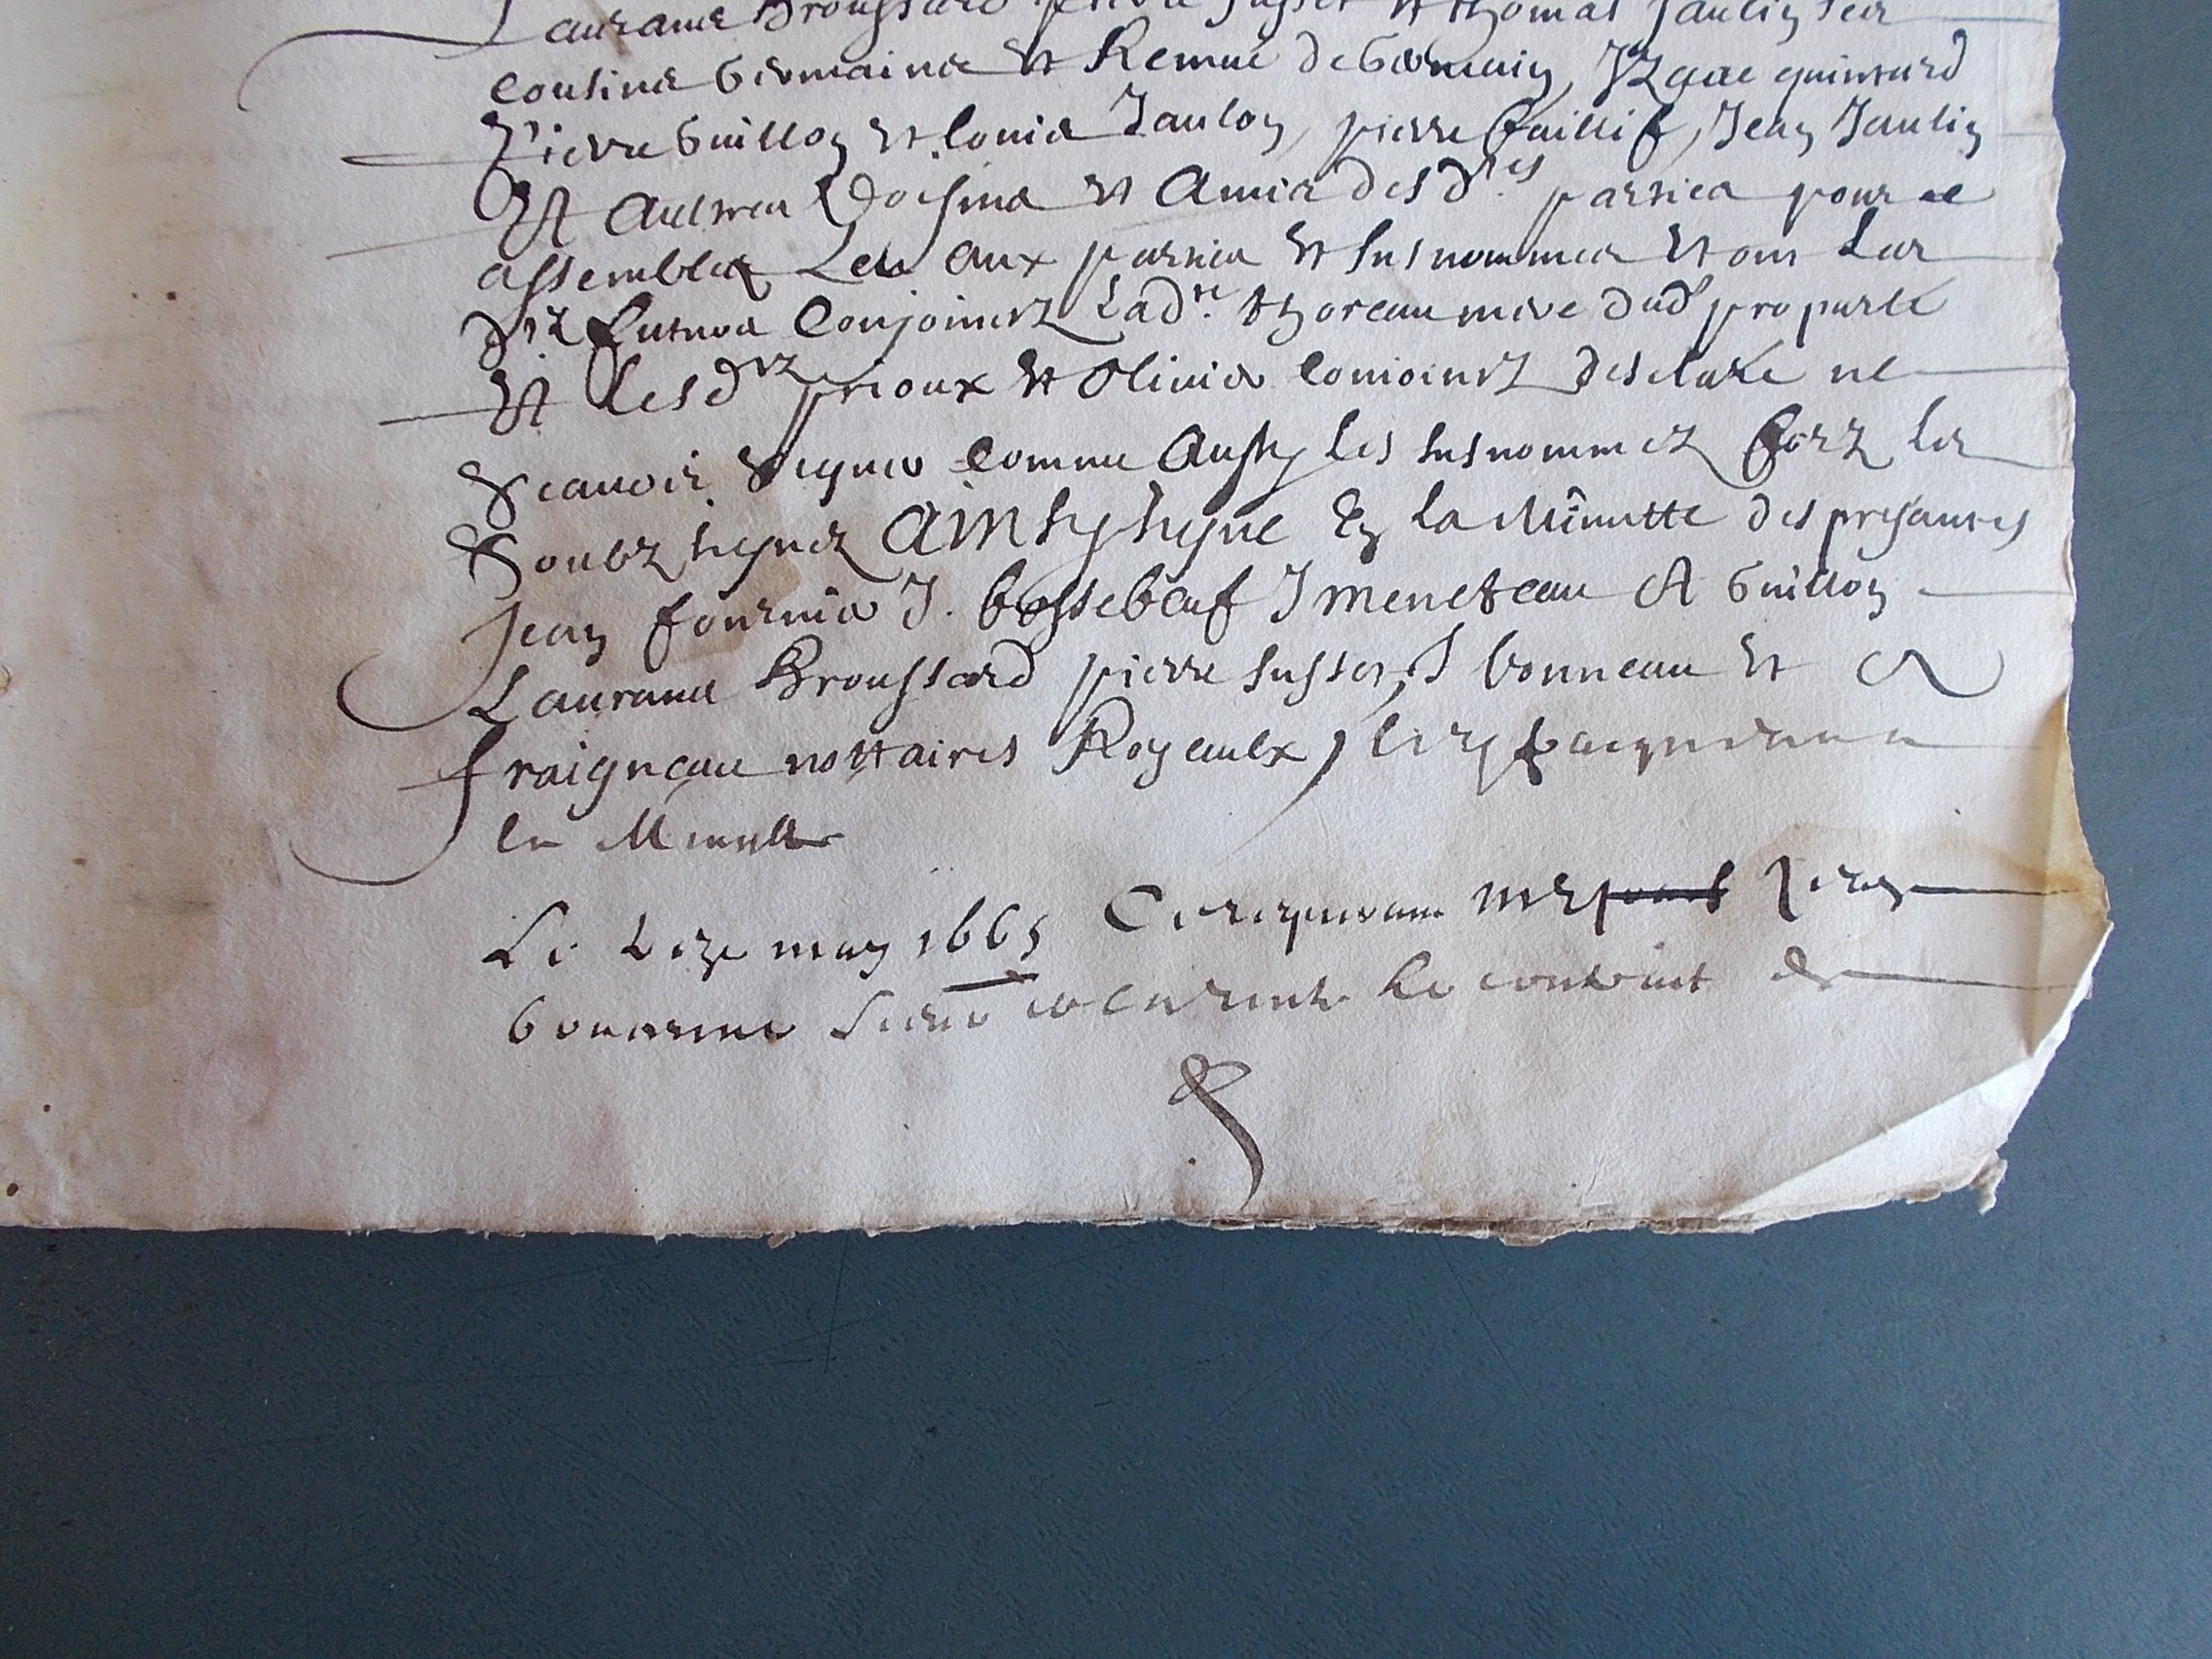 Laurans Broussard pierre susset et thomas Jaulin ses
cousins Germains et Remué de Germain, Izaac quintard
Pierre Guillon et louis Jaulon, pierre Jean Jaulin
Et Aultres Voisins et Amis des d.tes parties pour ce
assemblez Leu aux parties et susnommez et ont Les
d.tz futurs Conjointz Lad.te thoreau mère dud propark
Et lesd.tz prioux et Olivier conjointz desclaré ne
Scauoir Signer comme Aussy les susnommez forz les
Soubzsignez Ainsy signé En la Minutte des presantes
Jean fournier J. bossebeuf J meneteau A Guillon
Laurans Broussard pierre susset, J bonneau et
fraigneau nottaires Royaulx,
la Minutte
Le may 1665
le contraict de